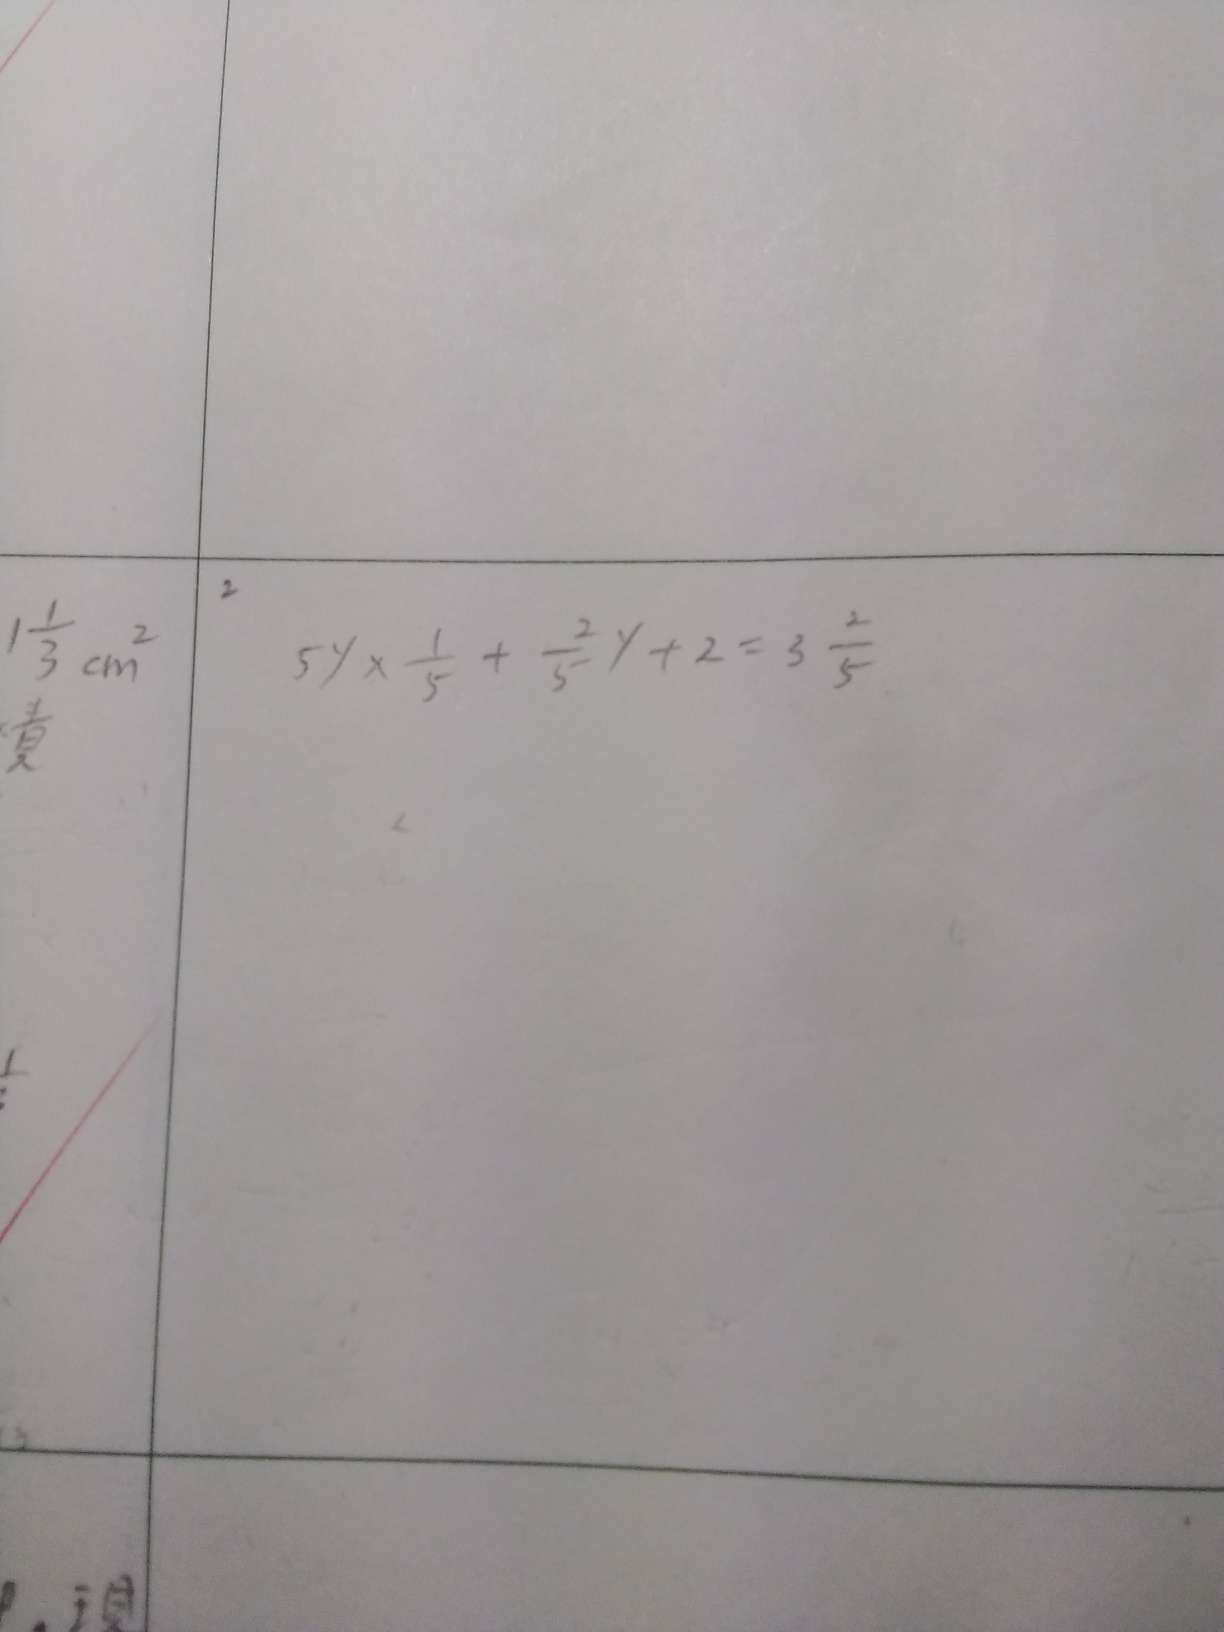 1 1/3 cm²
積
2
5y × 1/5 + 2/5 y + 2 = 3 2/5